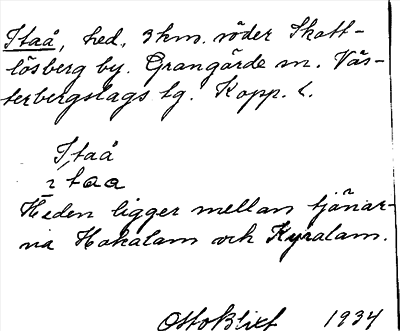 Itaå, hed, 3 km. söder Skatt-
lösberg by. Grangärde sn. Väs-
terbergslags tg. Kopp. l.
Itaå
ı̄taa
Heden ligger mellan tjänar-
na Hakalam och Kyralam.
Otto Blixt 1934